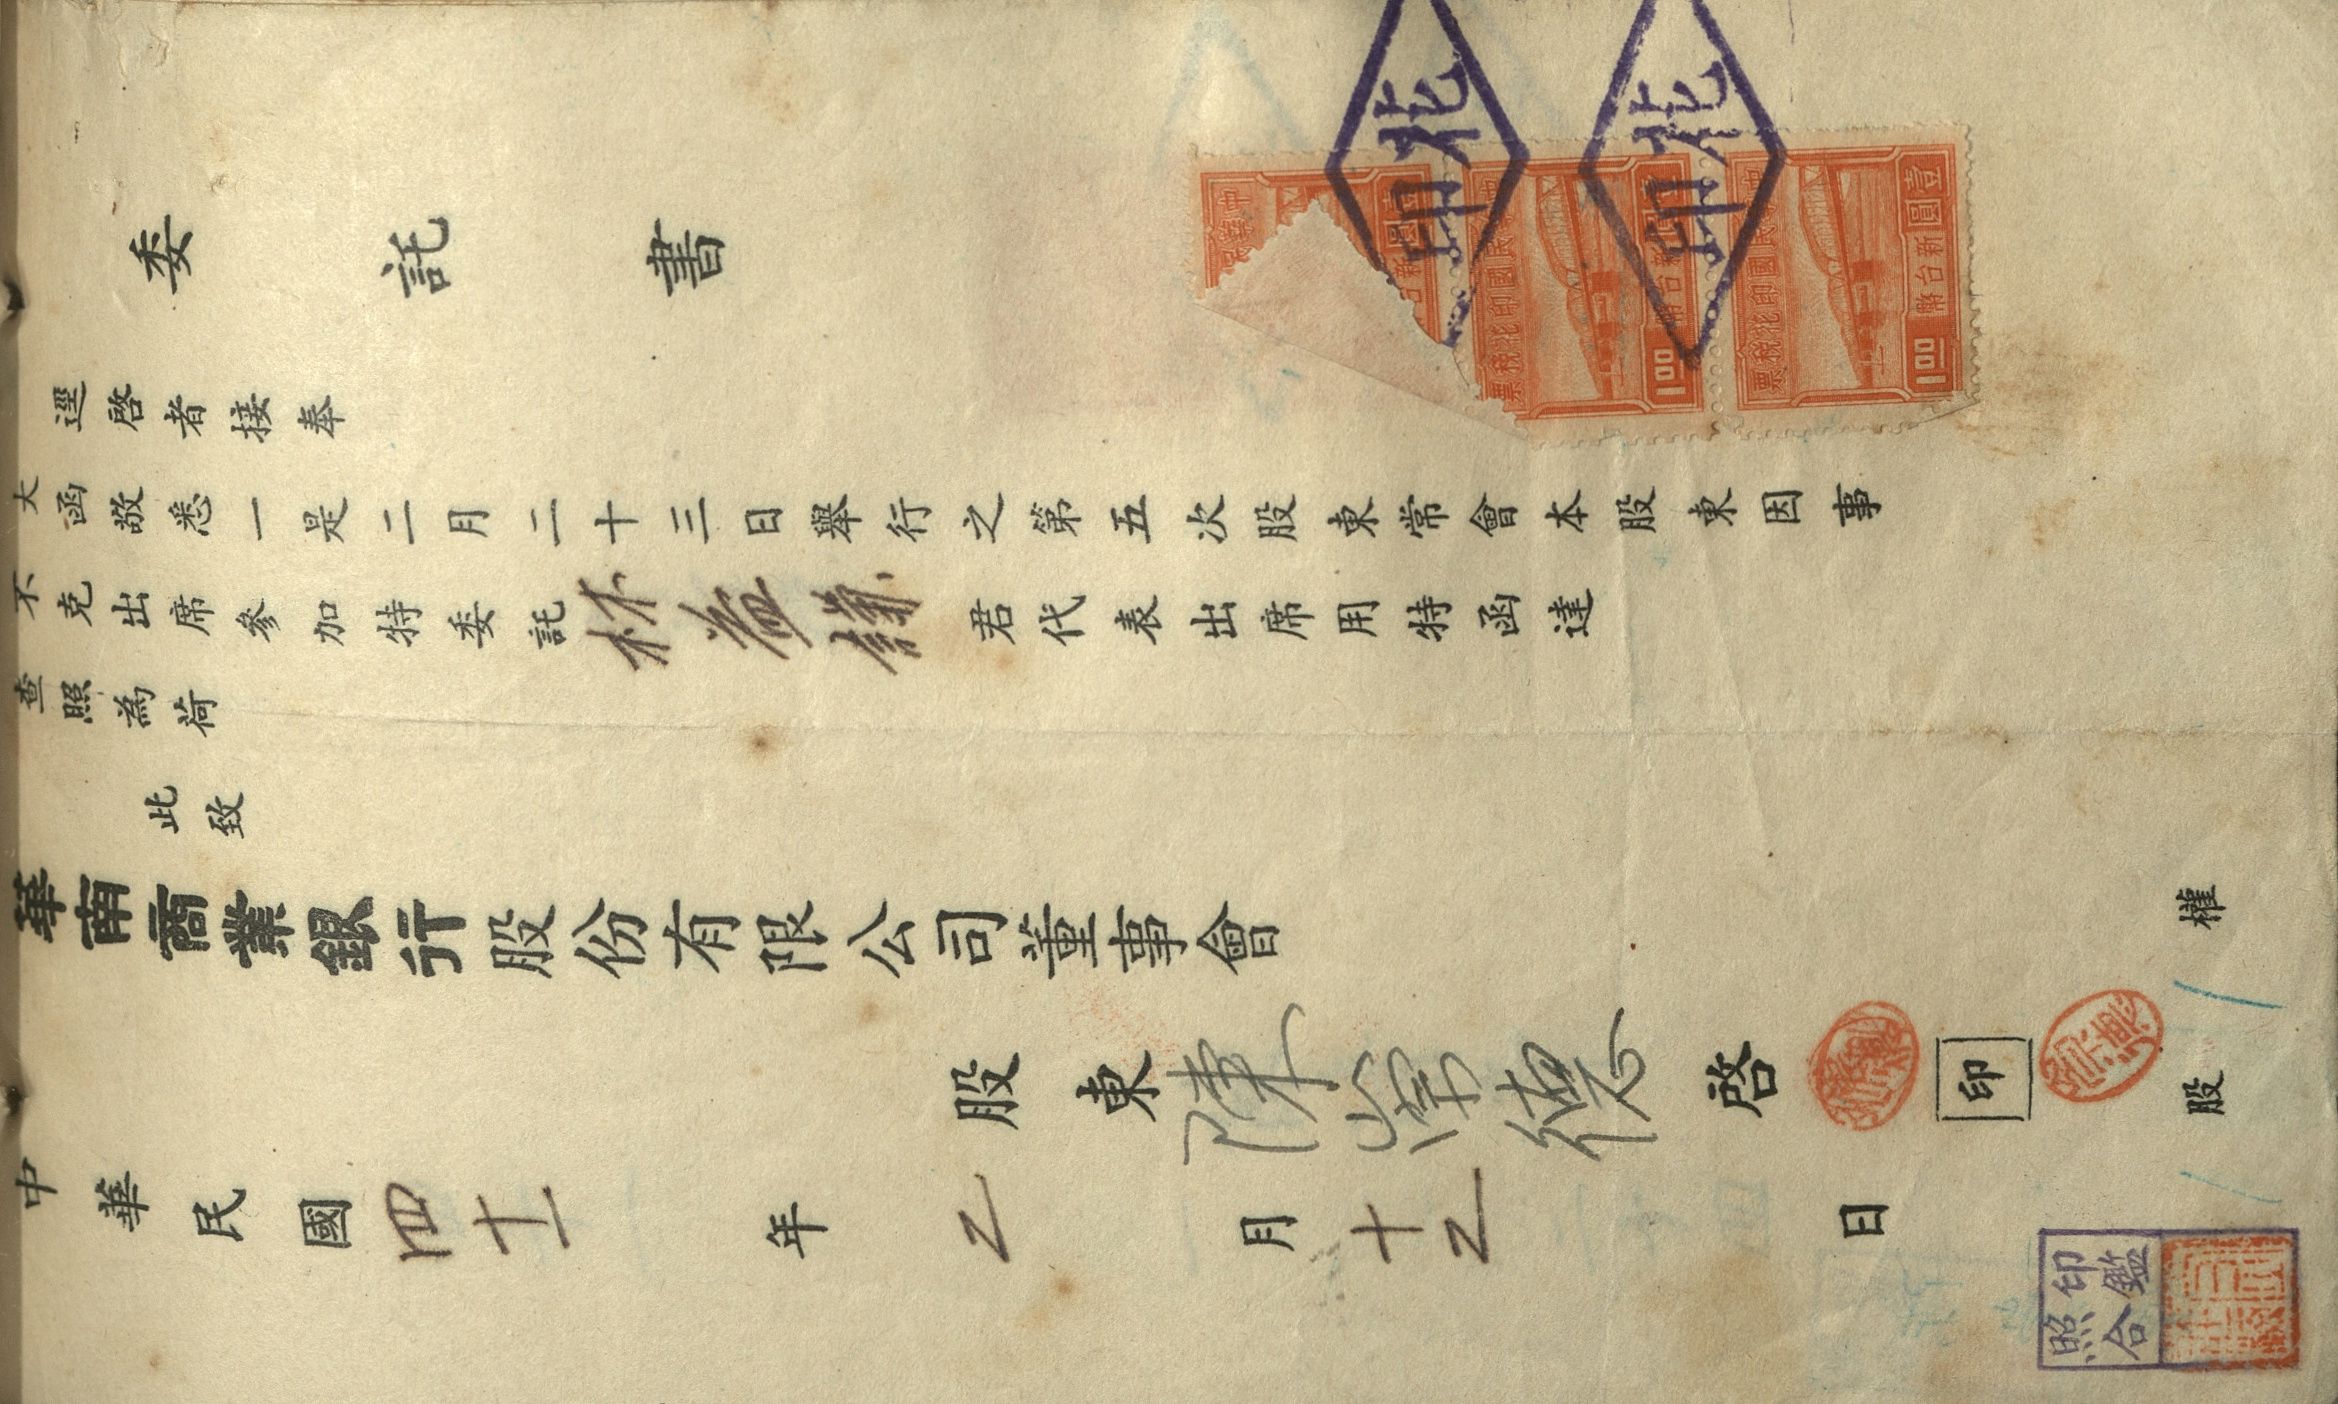 委託書
逕啓者接奉
大函敬悉一是二月二十三日舉行之第五次股東常會本股東因事
不克出席參加特委託林益謙君代表出席用特函達
查照為荷
此致
華南商業銀行股份有限公司董事會
股東陳崇德啓
印
中華民國四十一年乙月十乙日
權
股
印鑑
照合
中華民國印花稅票
壹圓
新台幣
1.00
中華民國印花稅票
壹圓
新台幣
1.00
印花
印花